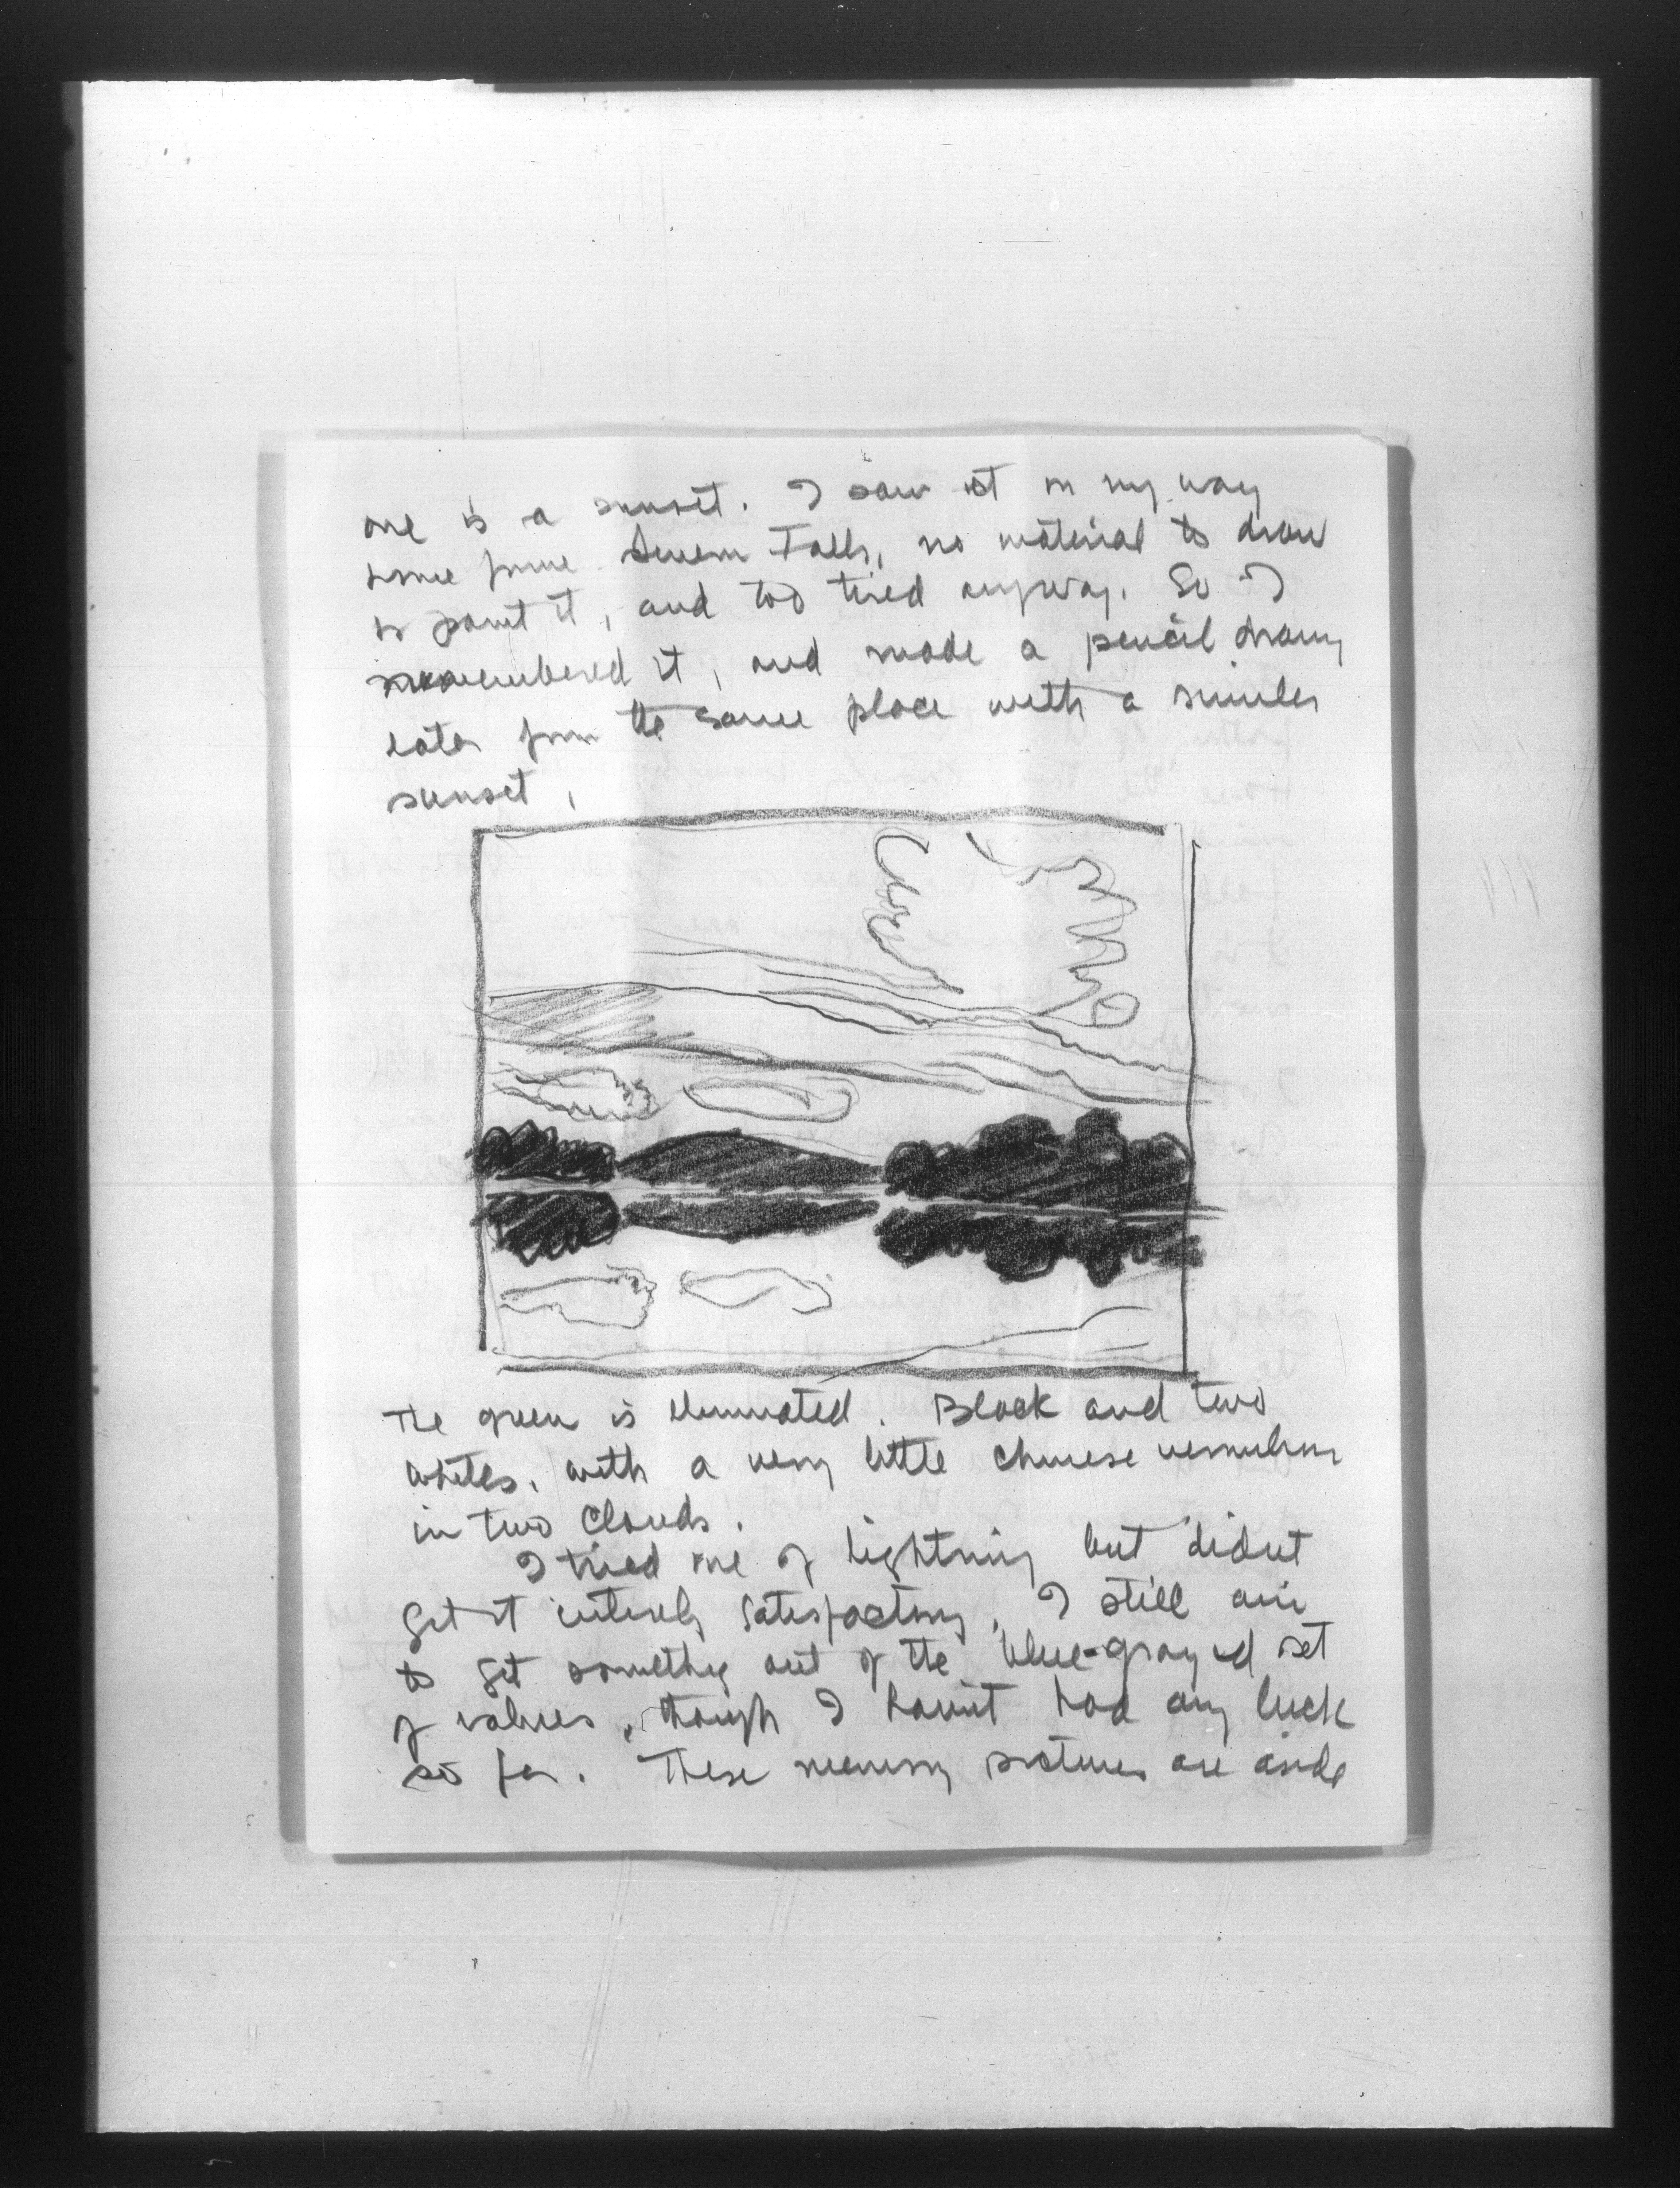 one is a sunset. I saw it on my way
home from Severn Falls, no material to draw
or paint it, and too tired anyway. So I
remembered it, and made a pencil drawing
later from the same place with a similar
sunset,
The green is eliminated. Black and two
whites, with a very little chinese vermilion
in two clouds.
I tried one of lightning but didnt
get it entirely satisfactory, I still aim
to get something out of the blue-gray set
of values, though I havnt had any luck
so far. These memory pictures are aside